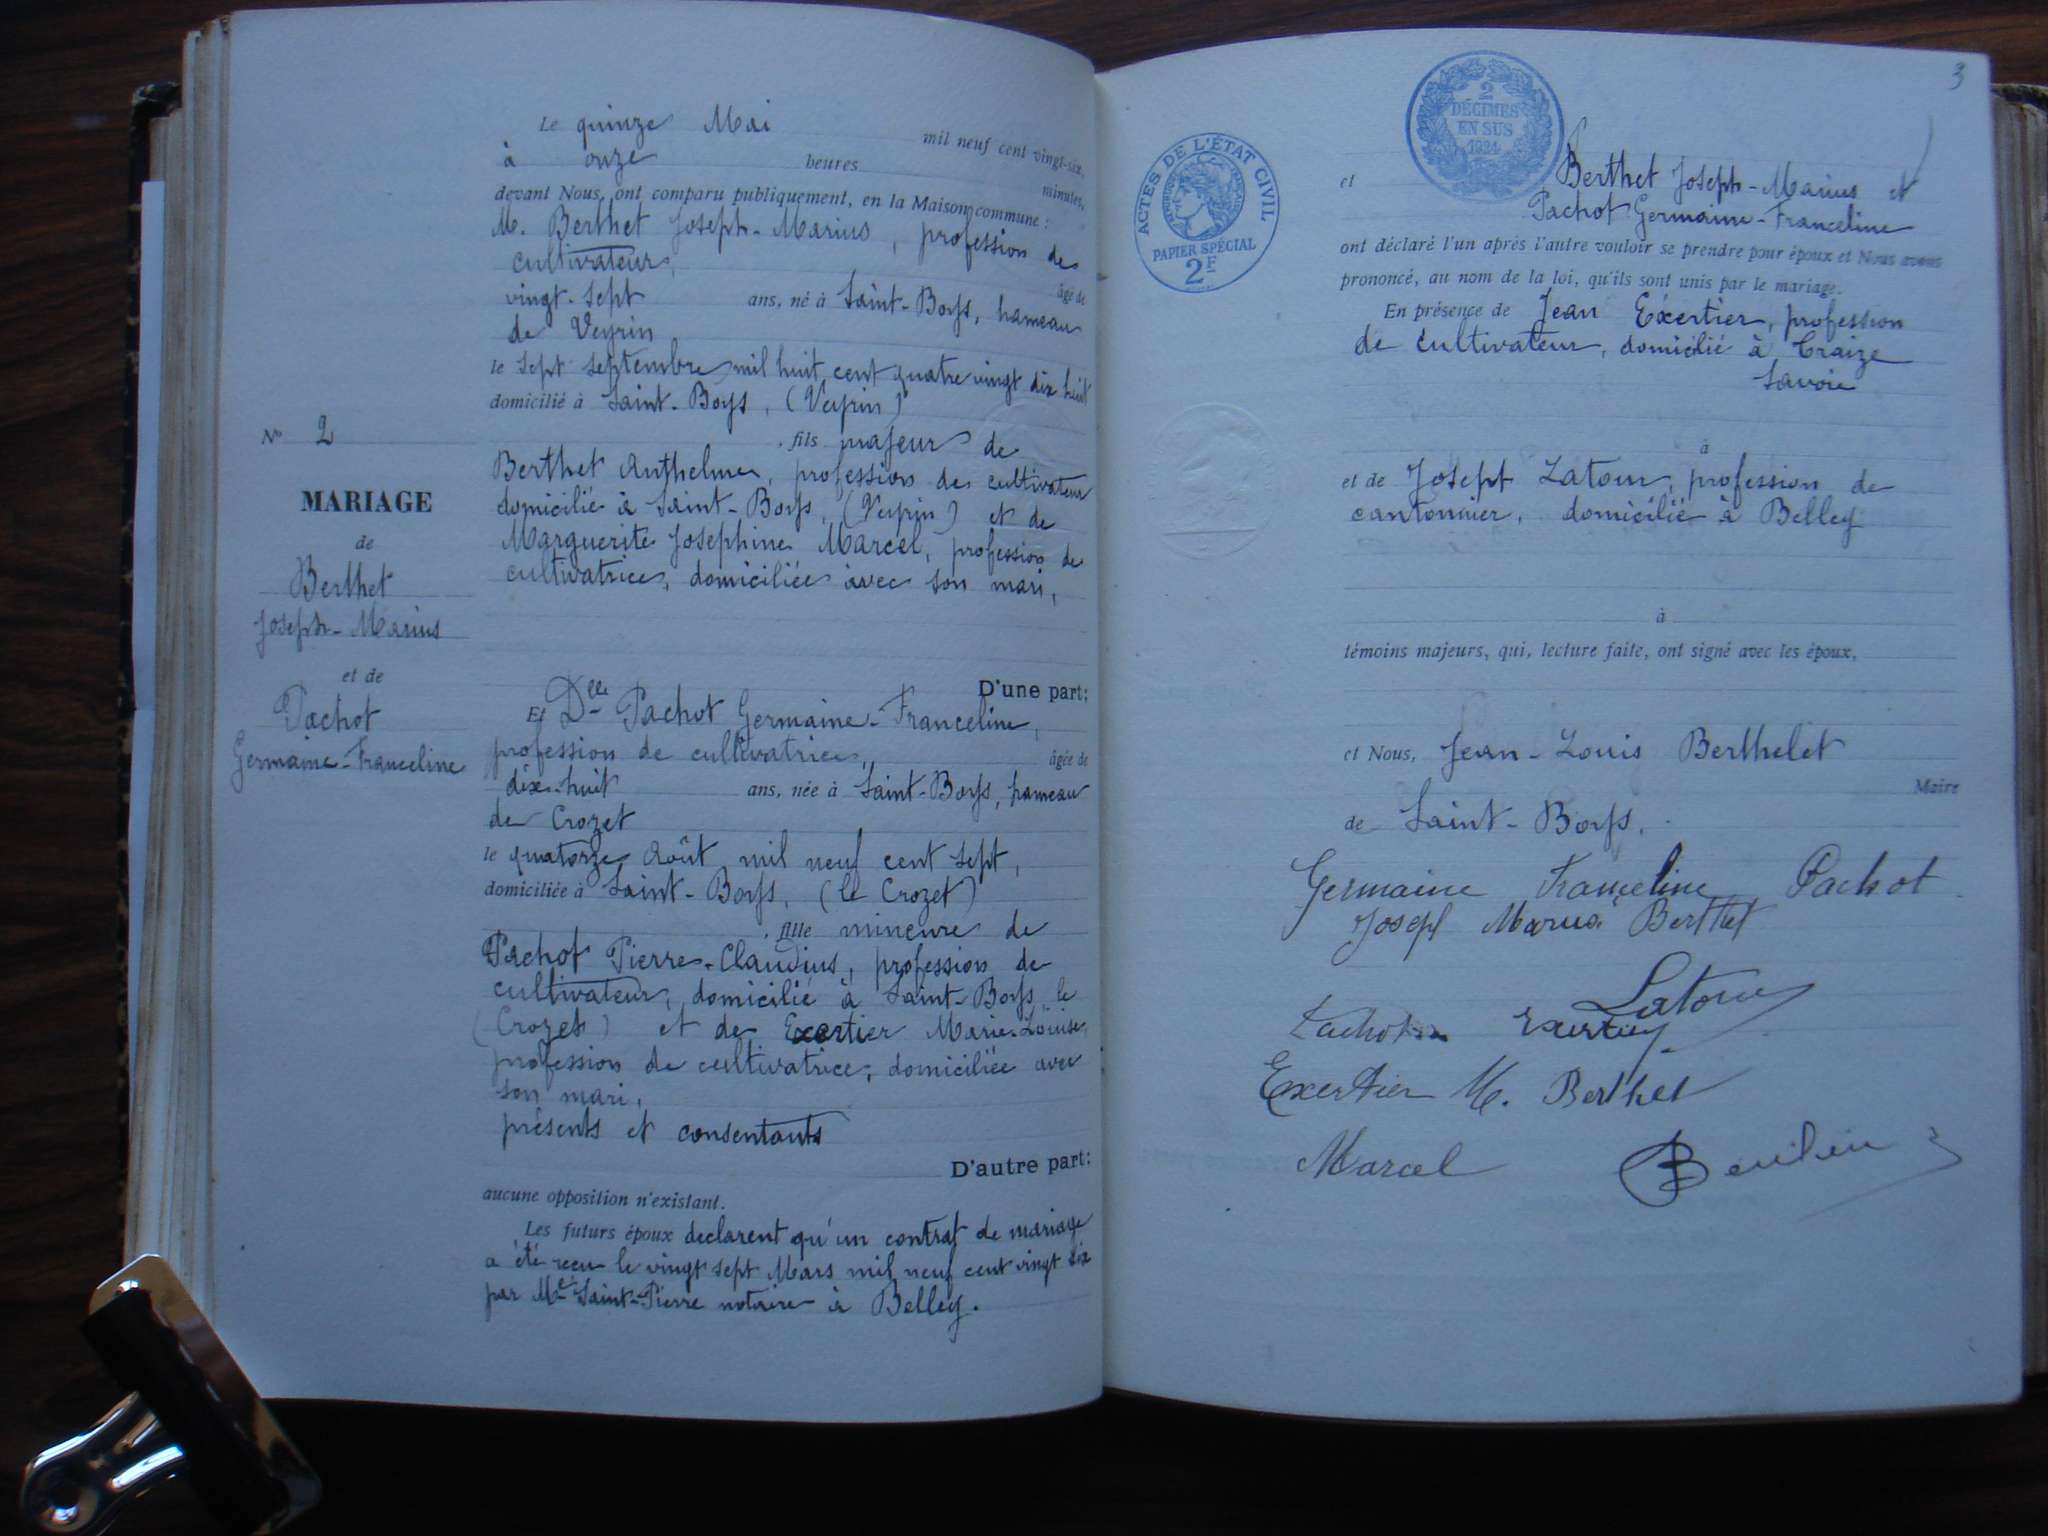 Le quinze Mai mil neuf cent vingt-six,
à onze heures minutes,
devant Nous, ont comparu publiquement, en la Maison commune :
M. Berthet Joseph-Marius, profession de
cultivateur, âgé de
vingt-sept ans, né à Saint-Boys, hameau
de Veyrin
le sept septembre mil huit cent quatre vingt dix huit
domicilié à Saint-Boys, (Veyrin)
, fils majeur de
Berthet Anthelme, profession de cultivateur
domicilié à Saint-Boys, (Veyrin) et de
Marguerite Josephine Marcel, profession de
cultivatrice, domiciliée avec son mari,
N° 2
MARIAGE
de
Berthet
Joseph-Marius
et de
Pachot
Germaine-Franceline
D'une part:
Et Dlle Pachot Germaine-Franceline,
profession de cultivatrice, âgée de
dix-huit ans, née à Saint-Boys, hameau
de Crozet
le quatorze Août mil neuf cent sept,
domiciliée à Saint-Boys, (le Crozet)
, fille mineure de
Pachot Pierre-Claudius, profession de
cultivateur, domicilié à Saint-Boys le
(Crozet) et de Exertier Marie-Louise,
profession de cultivatrice, domiciliée avec
son mari,
présents et consentants
D'autre part:
aucune opposition n'existant.
Les futurs époux declarent qu'un contrat de mariage
a été reçu le vingt sept Mars mil neuf cent vingt six
par Me Saint-Pierre notaire à Belley.
3
2
DÉCIMES
EN SUS
1924
ACTES DE L'ÉTAT CIVIL
PAPIER SPÉCIAL
2F
et Berthet Joseph-Marius et
Pachot Germaine-Franceline
ont déclaré l'un après l'autre vouloir se prendre pour époux et Nous avons
prononcé, au nom de la loi, qu'ils sont unis par le mariage.
En présence de Jean Exertier, profession
de cultivateur, domicilié à Traize
Savoie
à
et de Joseph Latour, profession de
cantonnier, domicilié à Belley
à
témoins majeurs, qui, lecture faite, ont signé avec les époux,
et Nous, Jean-Louis Berthelet
Maire
de Saint-Boys.
Germaine Franceline Pachot
Joseph Marius Berthet
Latour
Pachot
Exertier M. Berthet
Marcel